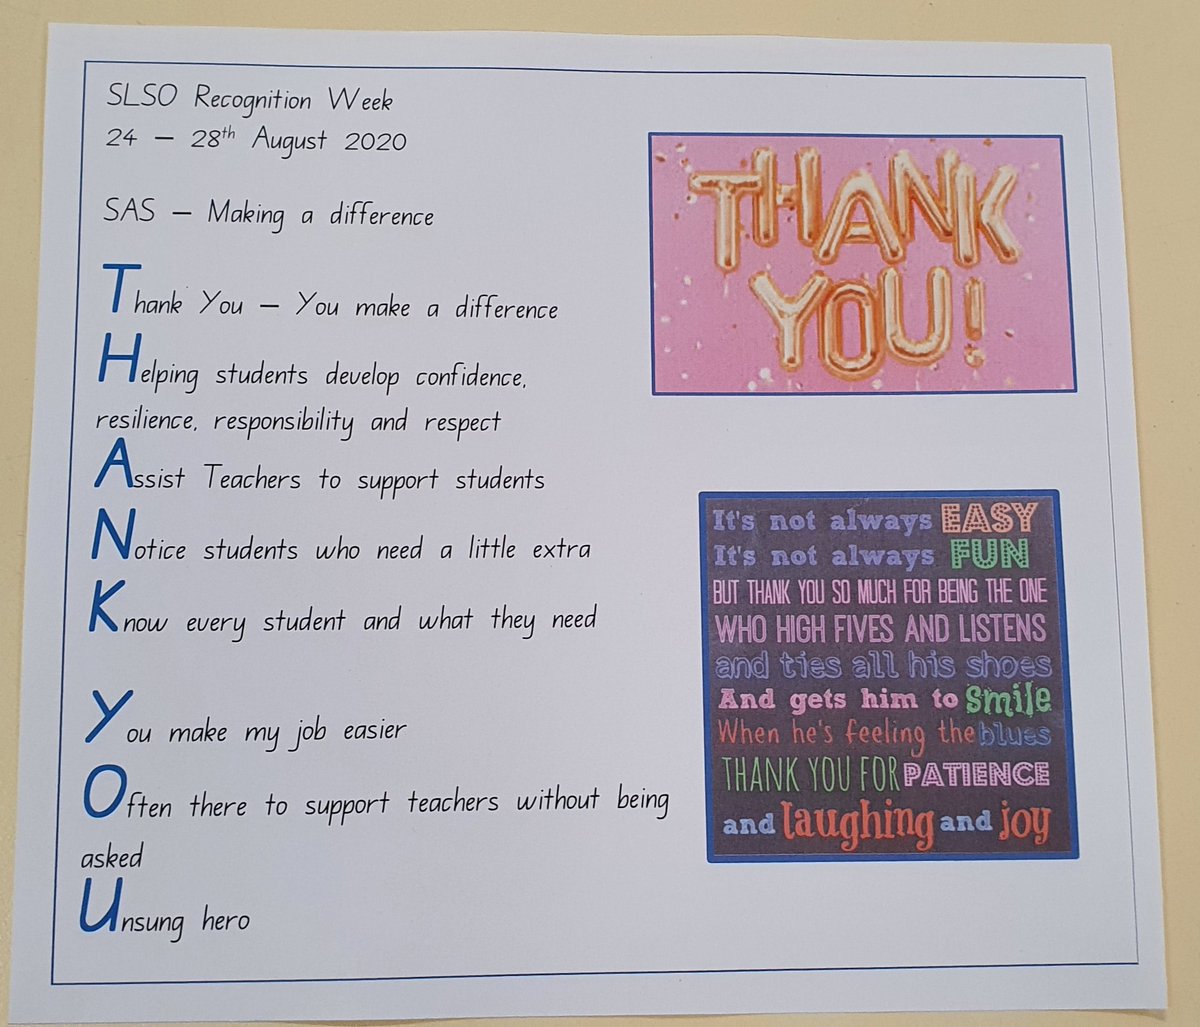 SLSO Recognition Week
24 – 28th August 2020
SAS – Making a difference
Thank You – You make a difference
Helping students develop confidence,
resilience, responsibility and respect
Assist Teachers to support students
Notice students who need a little extra
Know every student and what they need
You make my job easier
Often there to support teachers without being
asked
Unsung hero
THANK
YOU!
It's not always EASY
It's not always FUN
BUT THANK YOU SO MUCH FOR BEING THE ONE
WHO HIGH FIVES AND LISTENS
and ties all his shoes
And gets him to smile
When he's feeling the blues
THANK YOU FOR PATIENCE
and laughing and joy